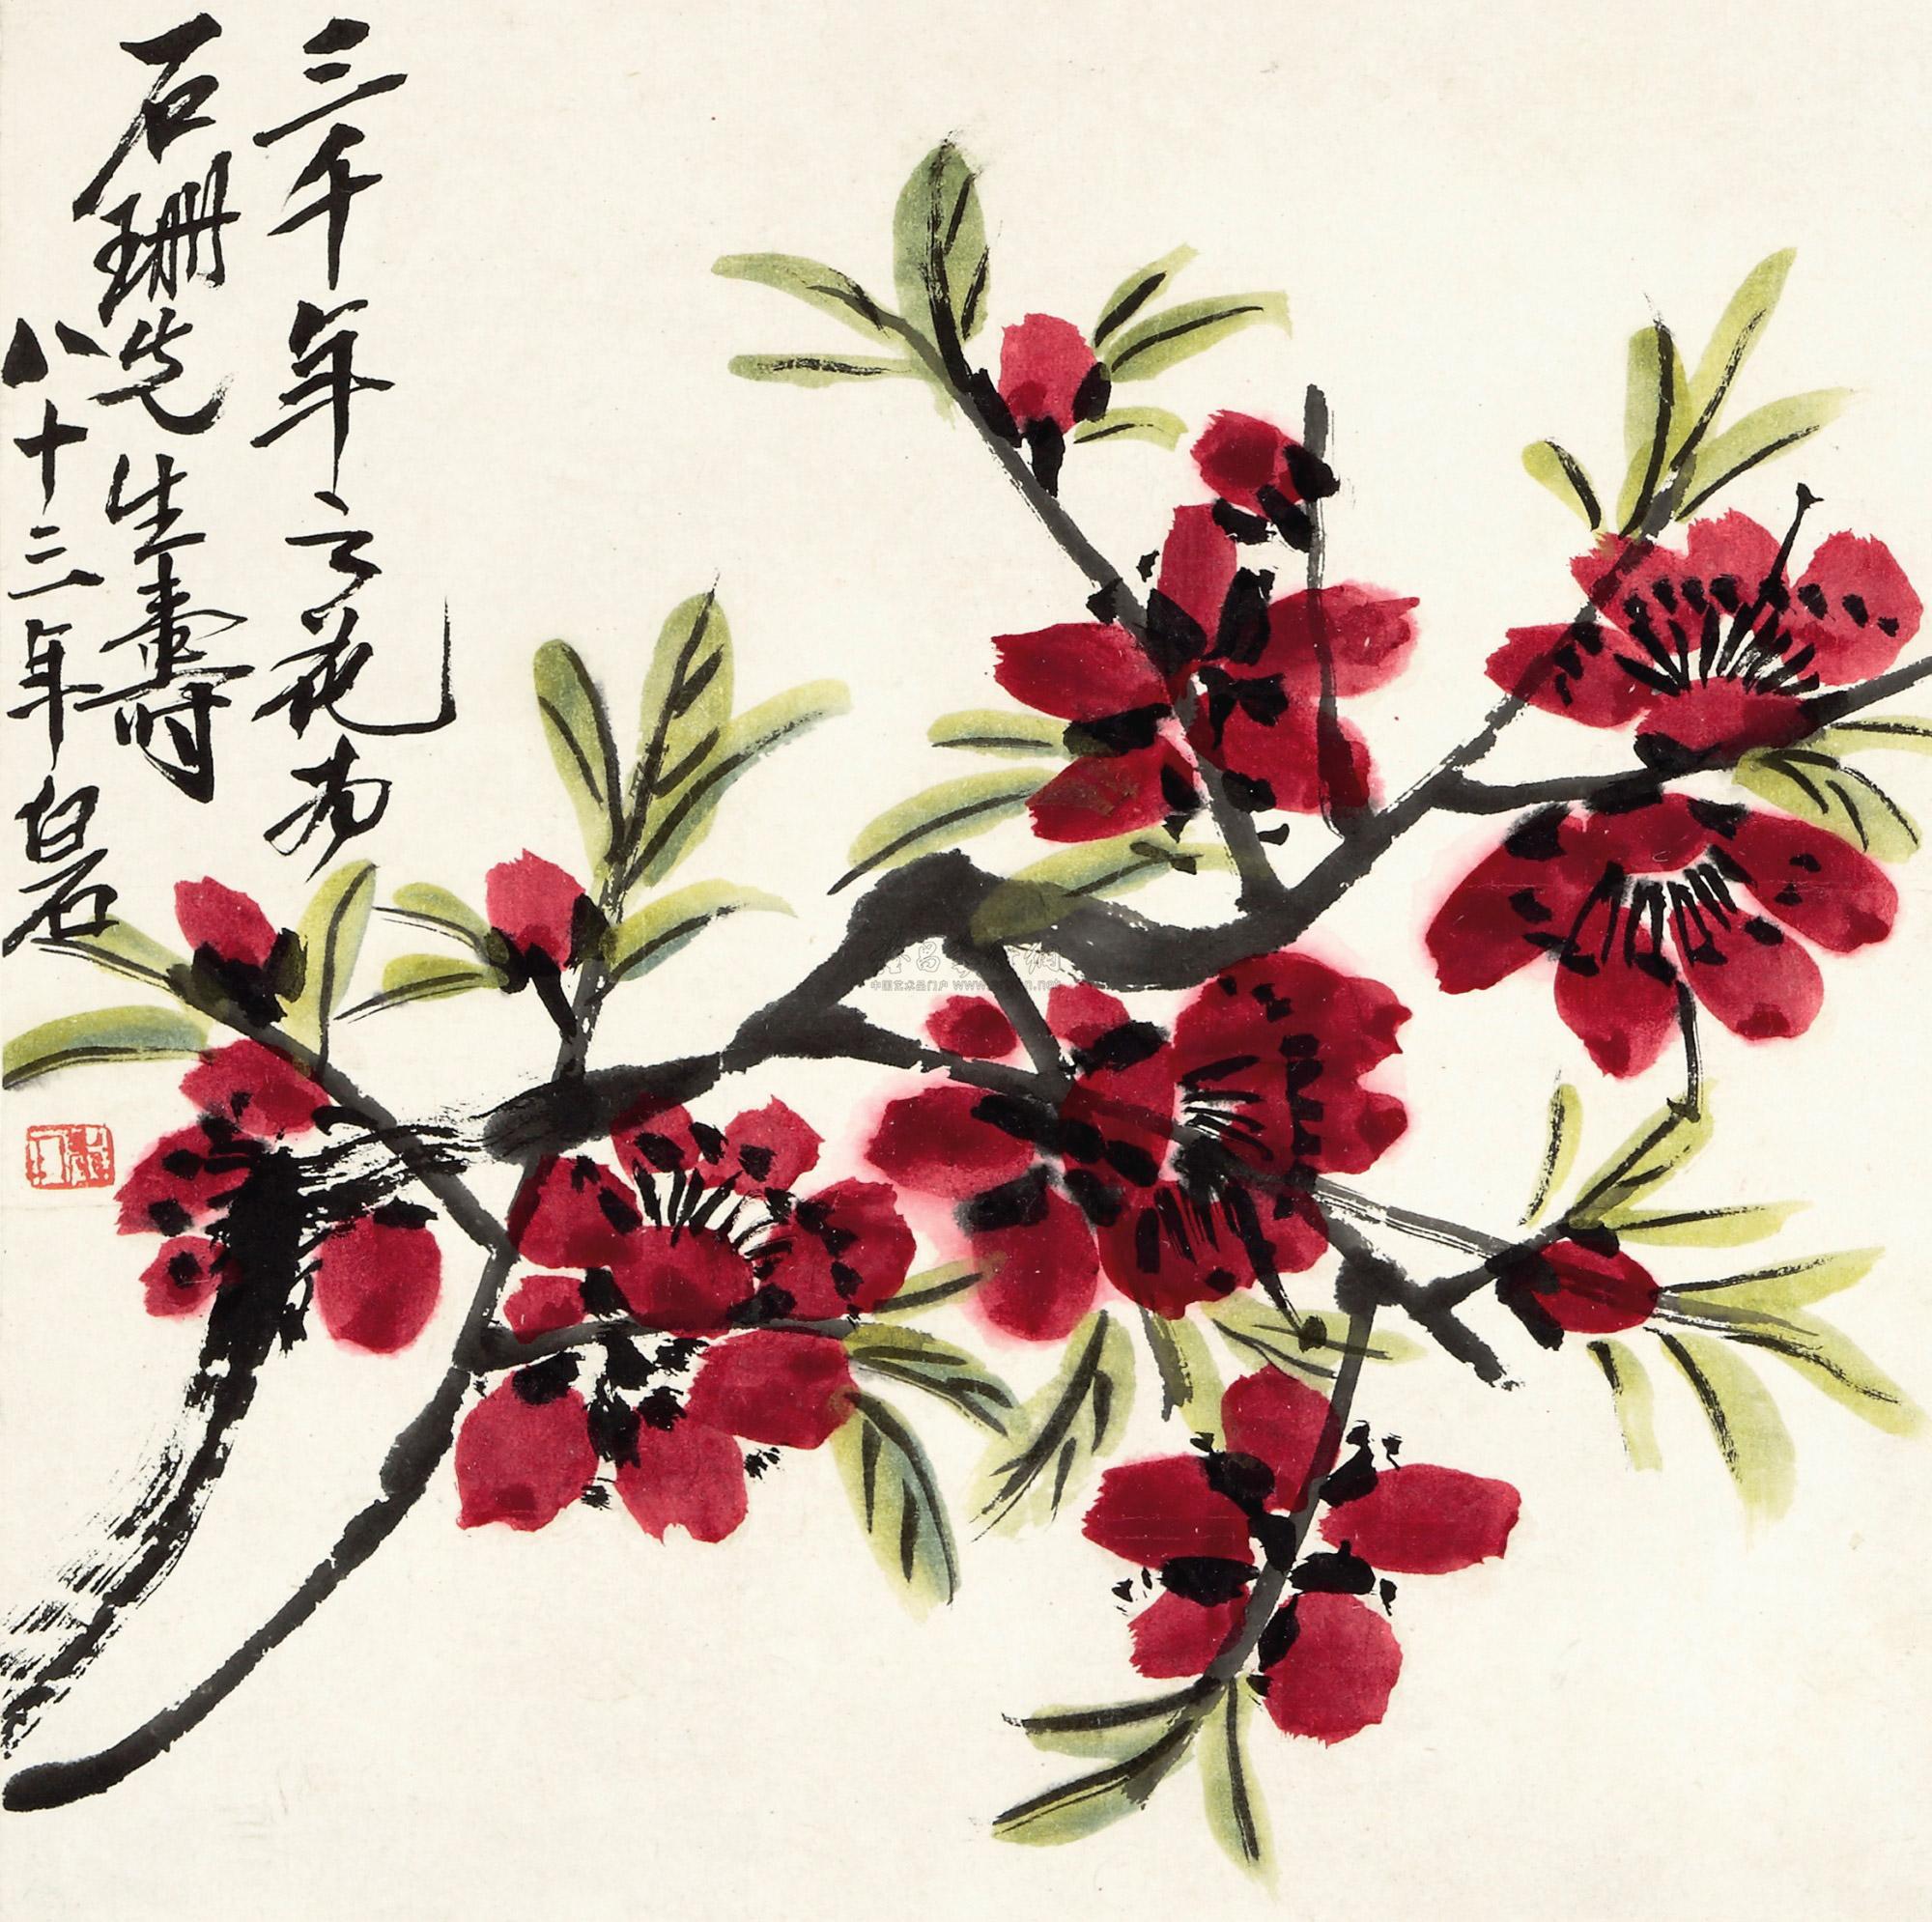 三千年之花为
石珊先生寿
八十三年白石
中国艺术品门户 www.